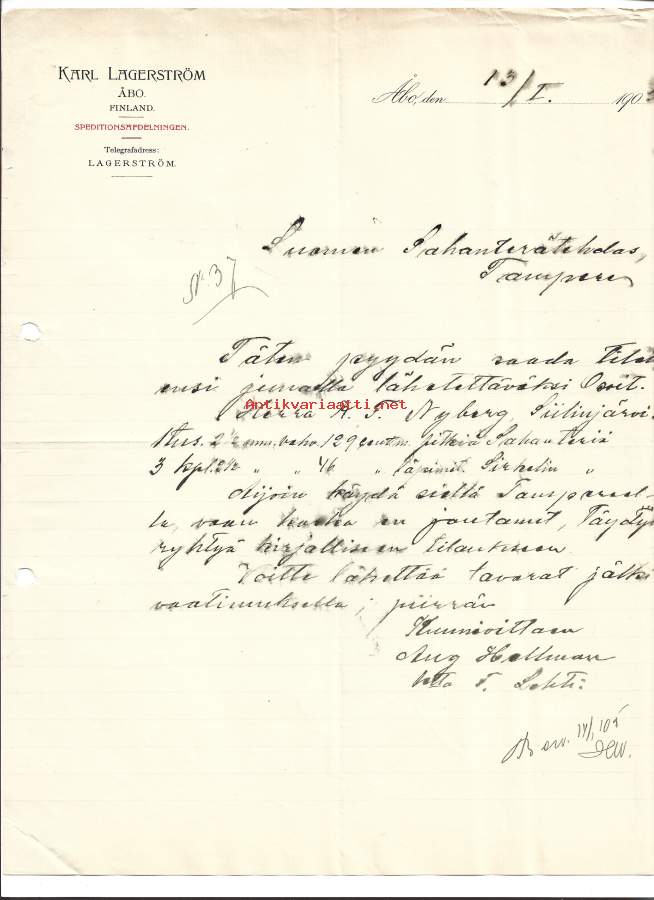 KARL LAGERSTRÖM
ÅBO.
FINLAND.
SPEDITIONSAFDELNINGEN.
Telegrafadress:
LAGERSTRÖM.
Åbo, den 13/I. 190
Suomen Sahanterätehdas,
Tampere
No 37
Täten pyydän saada
ensi junalla lähetettäväksi Osoit.
Antikvariaatti.net
Herra A. F. Nyberg, Siilinjärvi.
2 1/2 mm. vahv. 129 centm. pitkiä Sahanteriä
3 kpl. 2 1/2 " " 46 " läpimit. Sirkelin "
Aijoin käydä sieltä
vaan koska en joutanut, täydyn
ryhtyä kirjalliseen tilaukseen.
Voitte lähettää tavarat jälki
vaatimuksella; piirrän
Kunnioittaen
Aug Hellman
F. Lehti:
14/1 05